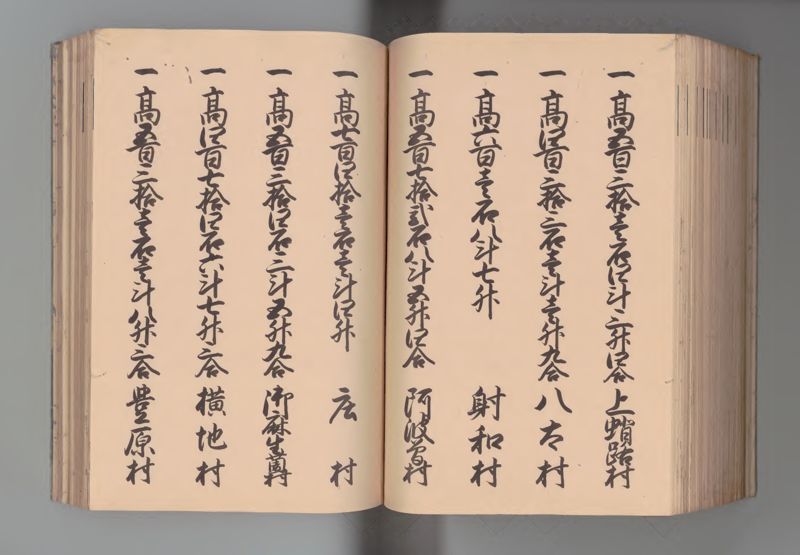 一 髙五百三拾壱石四斗三升四合 上蛸路村
一 髙四百三拾三石壱斗壱升九合 八太村
一 髙六百壱石八斗七升 射和村
一 髙五百七拾弐石八斗五升四合 阿波曽村
一 髙七百四拾壱石壱斗四升 庄村
一 髙五百三拾四石三斗五升九合 御麻生薗村
一 髙四百七拾四石六斗七升三合 横地村
一 髙五百三拾壱石壱斗八升三合 豊原村